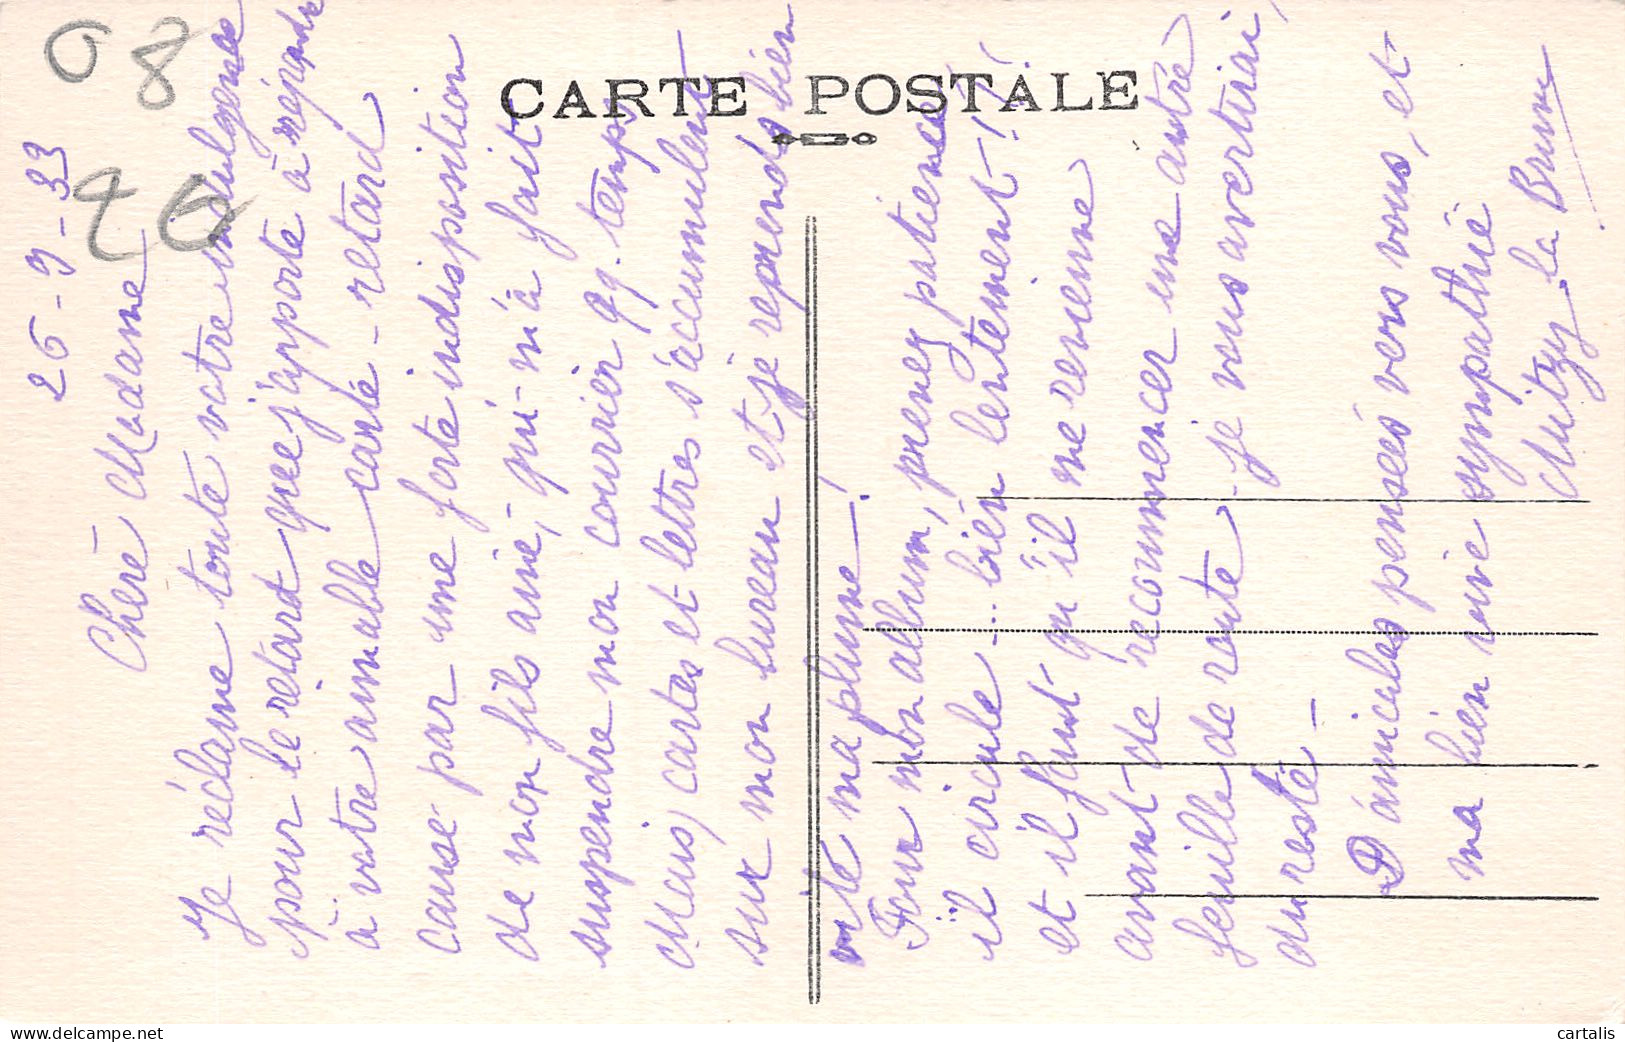 CARTE POSTALE
08
26
26-9-33
Chère Madame
Je réclame toute votre indulgence
pour le retard que j'apporte à répondre
à votre aimable carte - retard
causé par une forte indisposition
de mon fils ainé, qui m'a fait
suspendre mon courrier qq. temps
Mais, cartes et lettres s'accumulent
sur mon bureau et je reprends bien
vite ma plume - !
Pour mon album, prenez patience,
il circule - ... bien lentement - !!
et il faut qu'il me revienne
avant de recommencer une autre
feuille de route - je vous avertirai,
du reste -
D'amicales pensées vers vous, et
ma bien vive sympathie
Mitzy la Brune
cartalis
www.delcampe.net